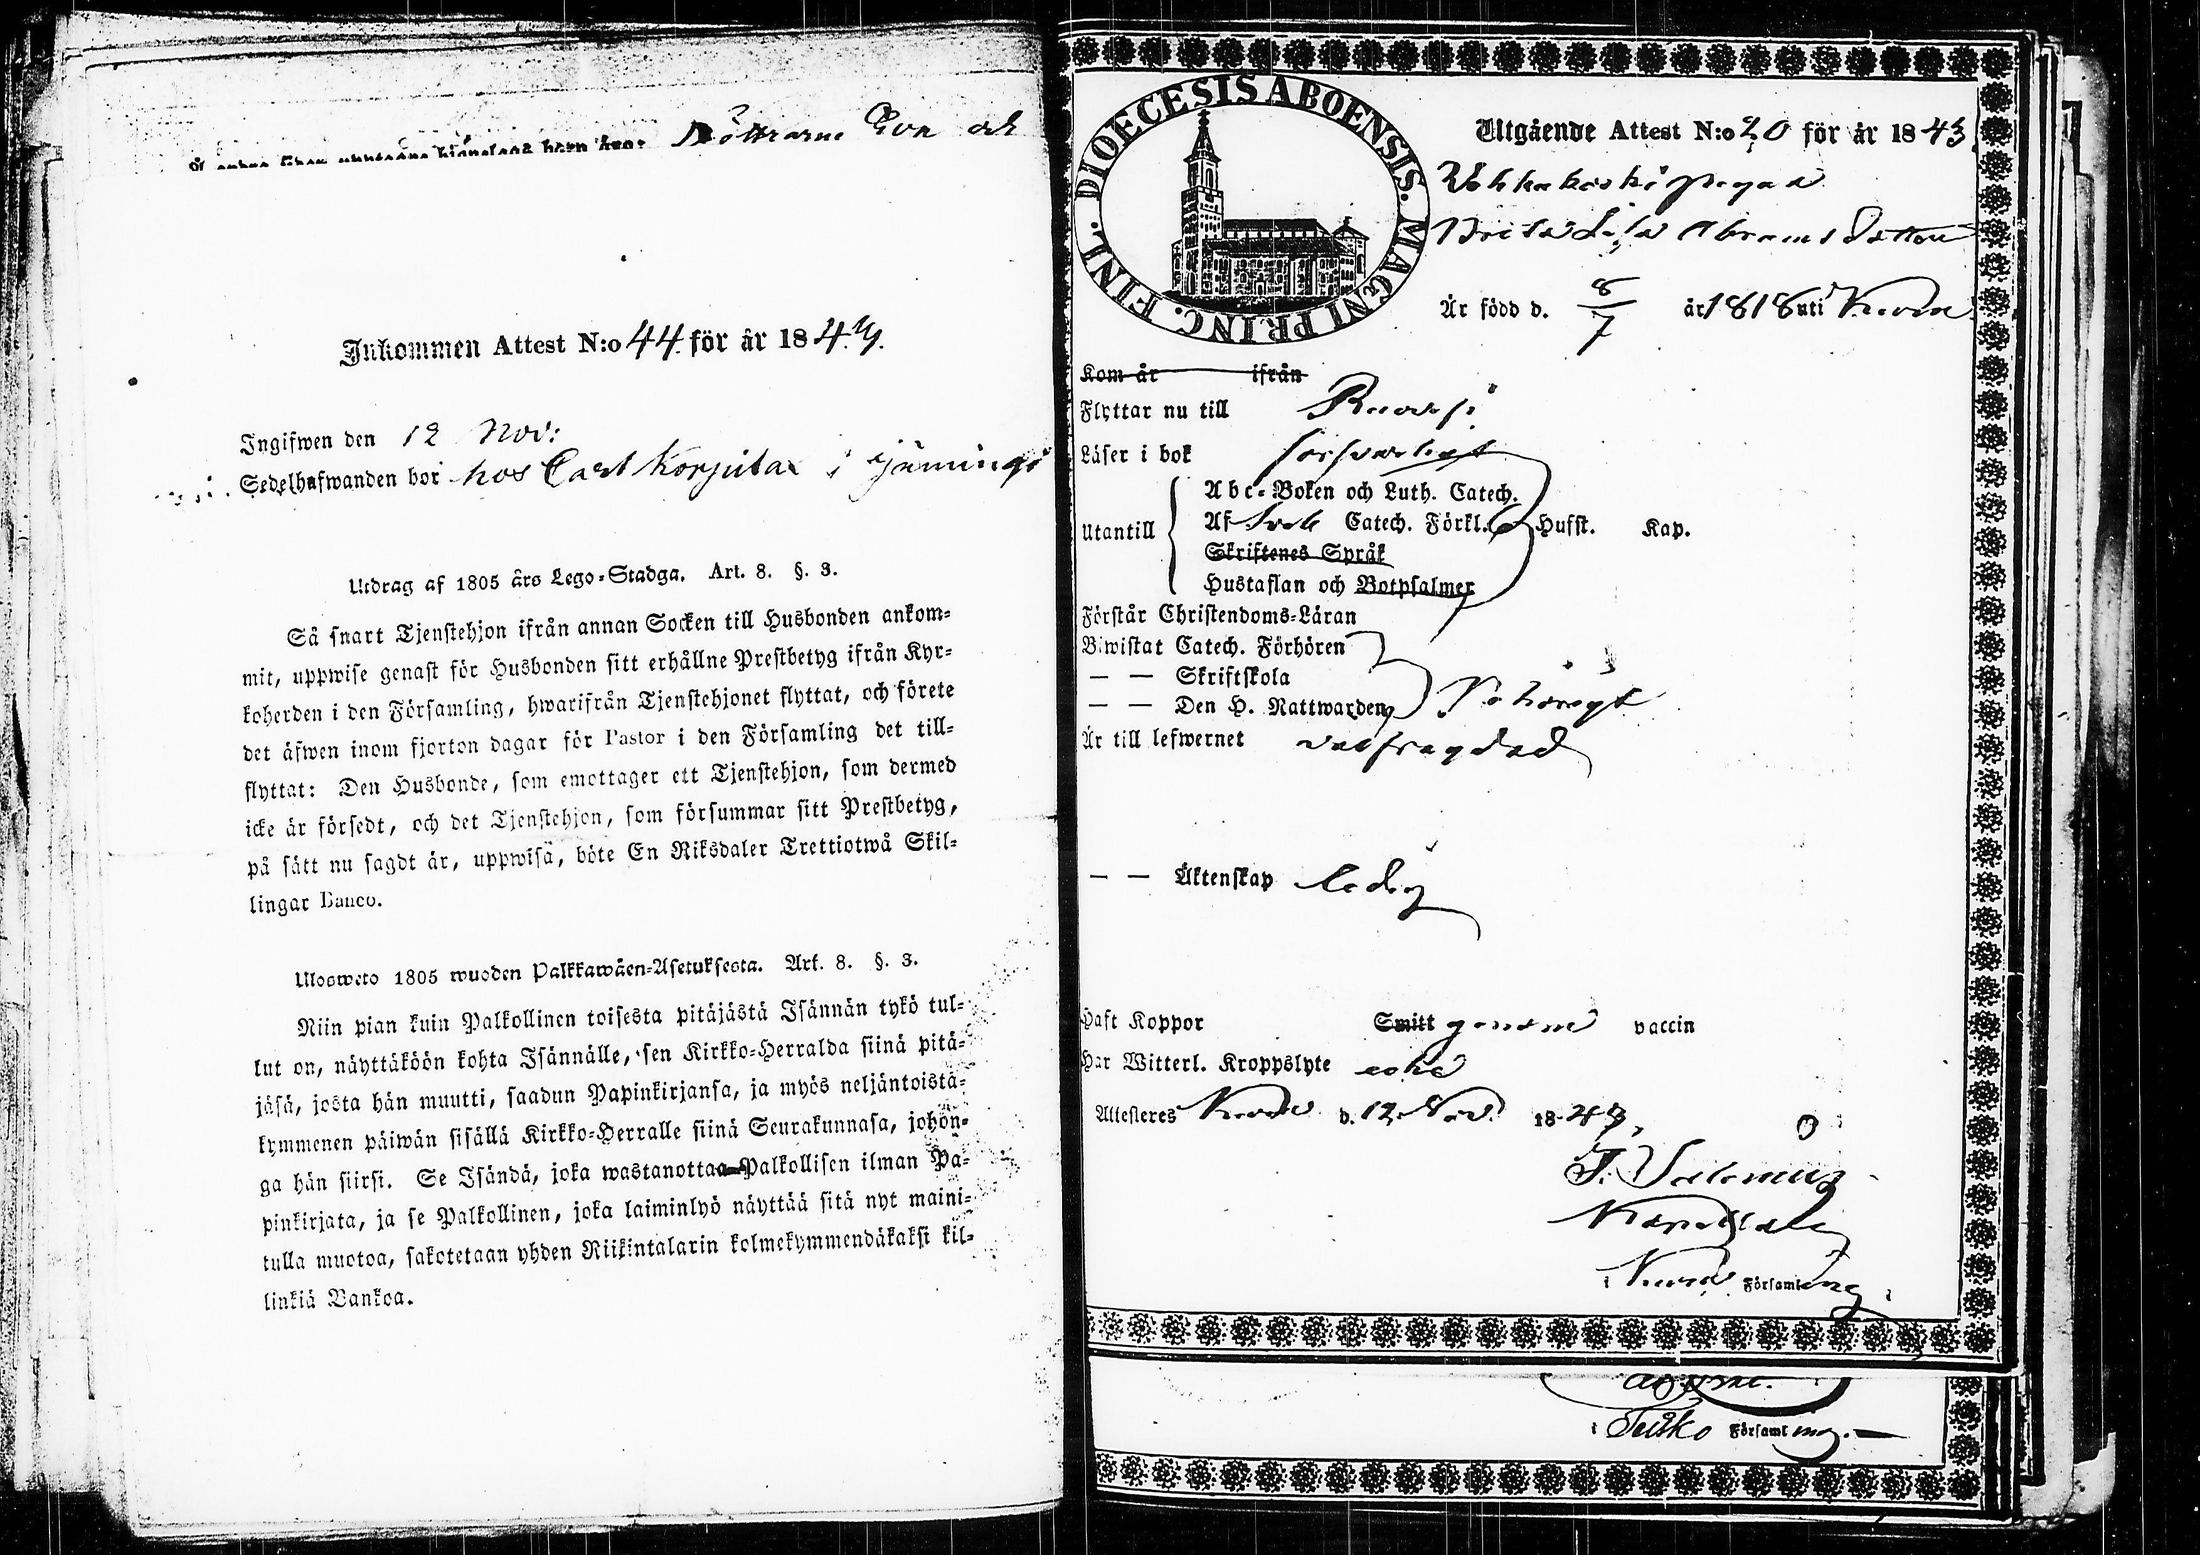 Döttrarne Eva och
Inkommen Attest N:o 44 för år 1843.
Ingifwen den 12 Nov:
Sedelhafwanden bor hos Carl Korpilax i
Utdrag af 1805 års Lego-Stadga. Art. 8. §. 3.
Så snart Tjenstehjon ifrån annan Socken till Husbonden ankom-
mit, uppwise genast för Husbonden sitt erhållne Prestbetyg ifrån Kyr-
koherden i den Församling, hwarifrån Tjenstehjonet flyttat, och förete
det äfwen inom fjorton dagar för Pastor i den Församling det till-
flyttat: Den Husbonde, som emottager ett Tjenstehjon, som dermed
icke är försedt, och det Tjenstehjon, som försummar sitt Prestbetyg,
på sätt nu sagdt är, uppwisa, böte En Riksdaler Trettiotwå Skil-
lingar Banco.
Ulosweto 1805 wuoden Palkkawäen-Asetuksesta. Art. 8. §. 3.
Niin pian kuin Palkollinen toisesta pitäjästä Isännän tykö tul-
lut on, näyttäköön kohta Isännälle, sen Kirkko-Herralda siinä pitä-
jäsä, josta hän muutti, saadun Papinkirjansa, ja myös neljäntoistä-
kymmenen päiwän sisällä Kirkko-Herralle siinä Seurakunnasa, johon-
ga hän siirsi. Se Isändä, joka wastanottaa Palkollisen ilman Pa-
pinkirjata, ja se Palkollinen, joka laiminlyö näyttää sitä nyt maini-
tulla muotoa, sakotetaan yhden Riikintalarin kolmekymmendäkaksi kil-
linkiä Bankoa.
DIOECESIS ABOENSIS. MAGNI PRINC. FINL.
Utgående Attest N:o 20 för år 1843
pigan
Brita Lisa Abramsdotter
Är född d. 8/7 år 1818 uti
Kom år ifrån
Flyttar nu till Ruovesi
Läser i bok försvarligt
Abc-Boken och Luth. Catech.
Utantill Af Sveb Catech. Förkl. 6 Hufst. Kap.
Skriftenes Språk
Hustaflan och Botpsalmer
Förstår Christendoms-Läran
Biwistat Catech. Förhören
— — Skriftskola
— — Den H. Nattwarden behörigt
Är till lefwernet välfrägdad
— — Äktenskap ledig
Haft Koppor Smitt genom vaccin
Har Witterl. Kroppslyte icke
Attesteres d. 12 Nov. 1843,
Kapellan
i Församling
i Teisko Församling.